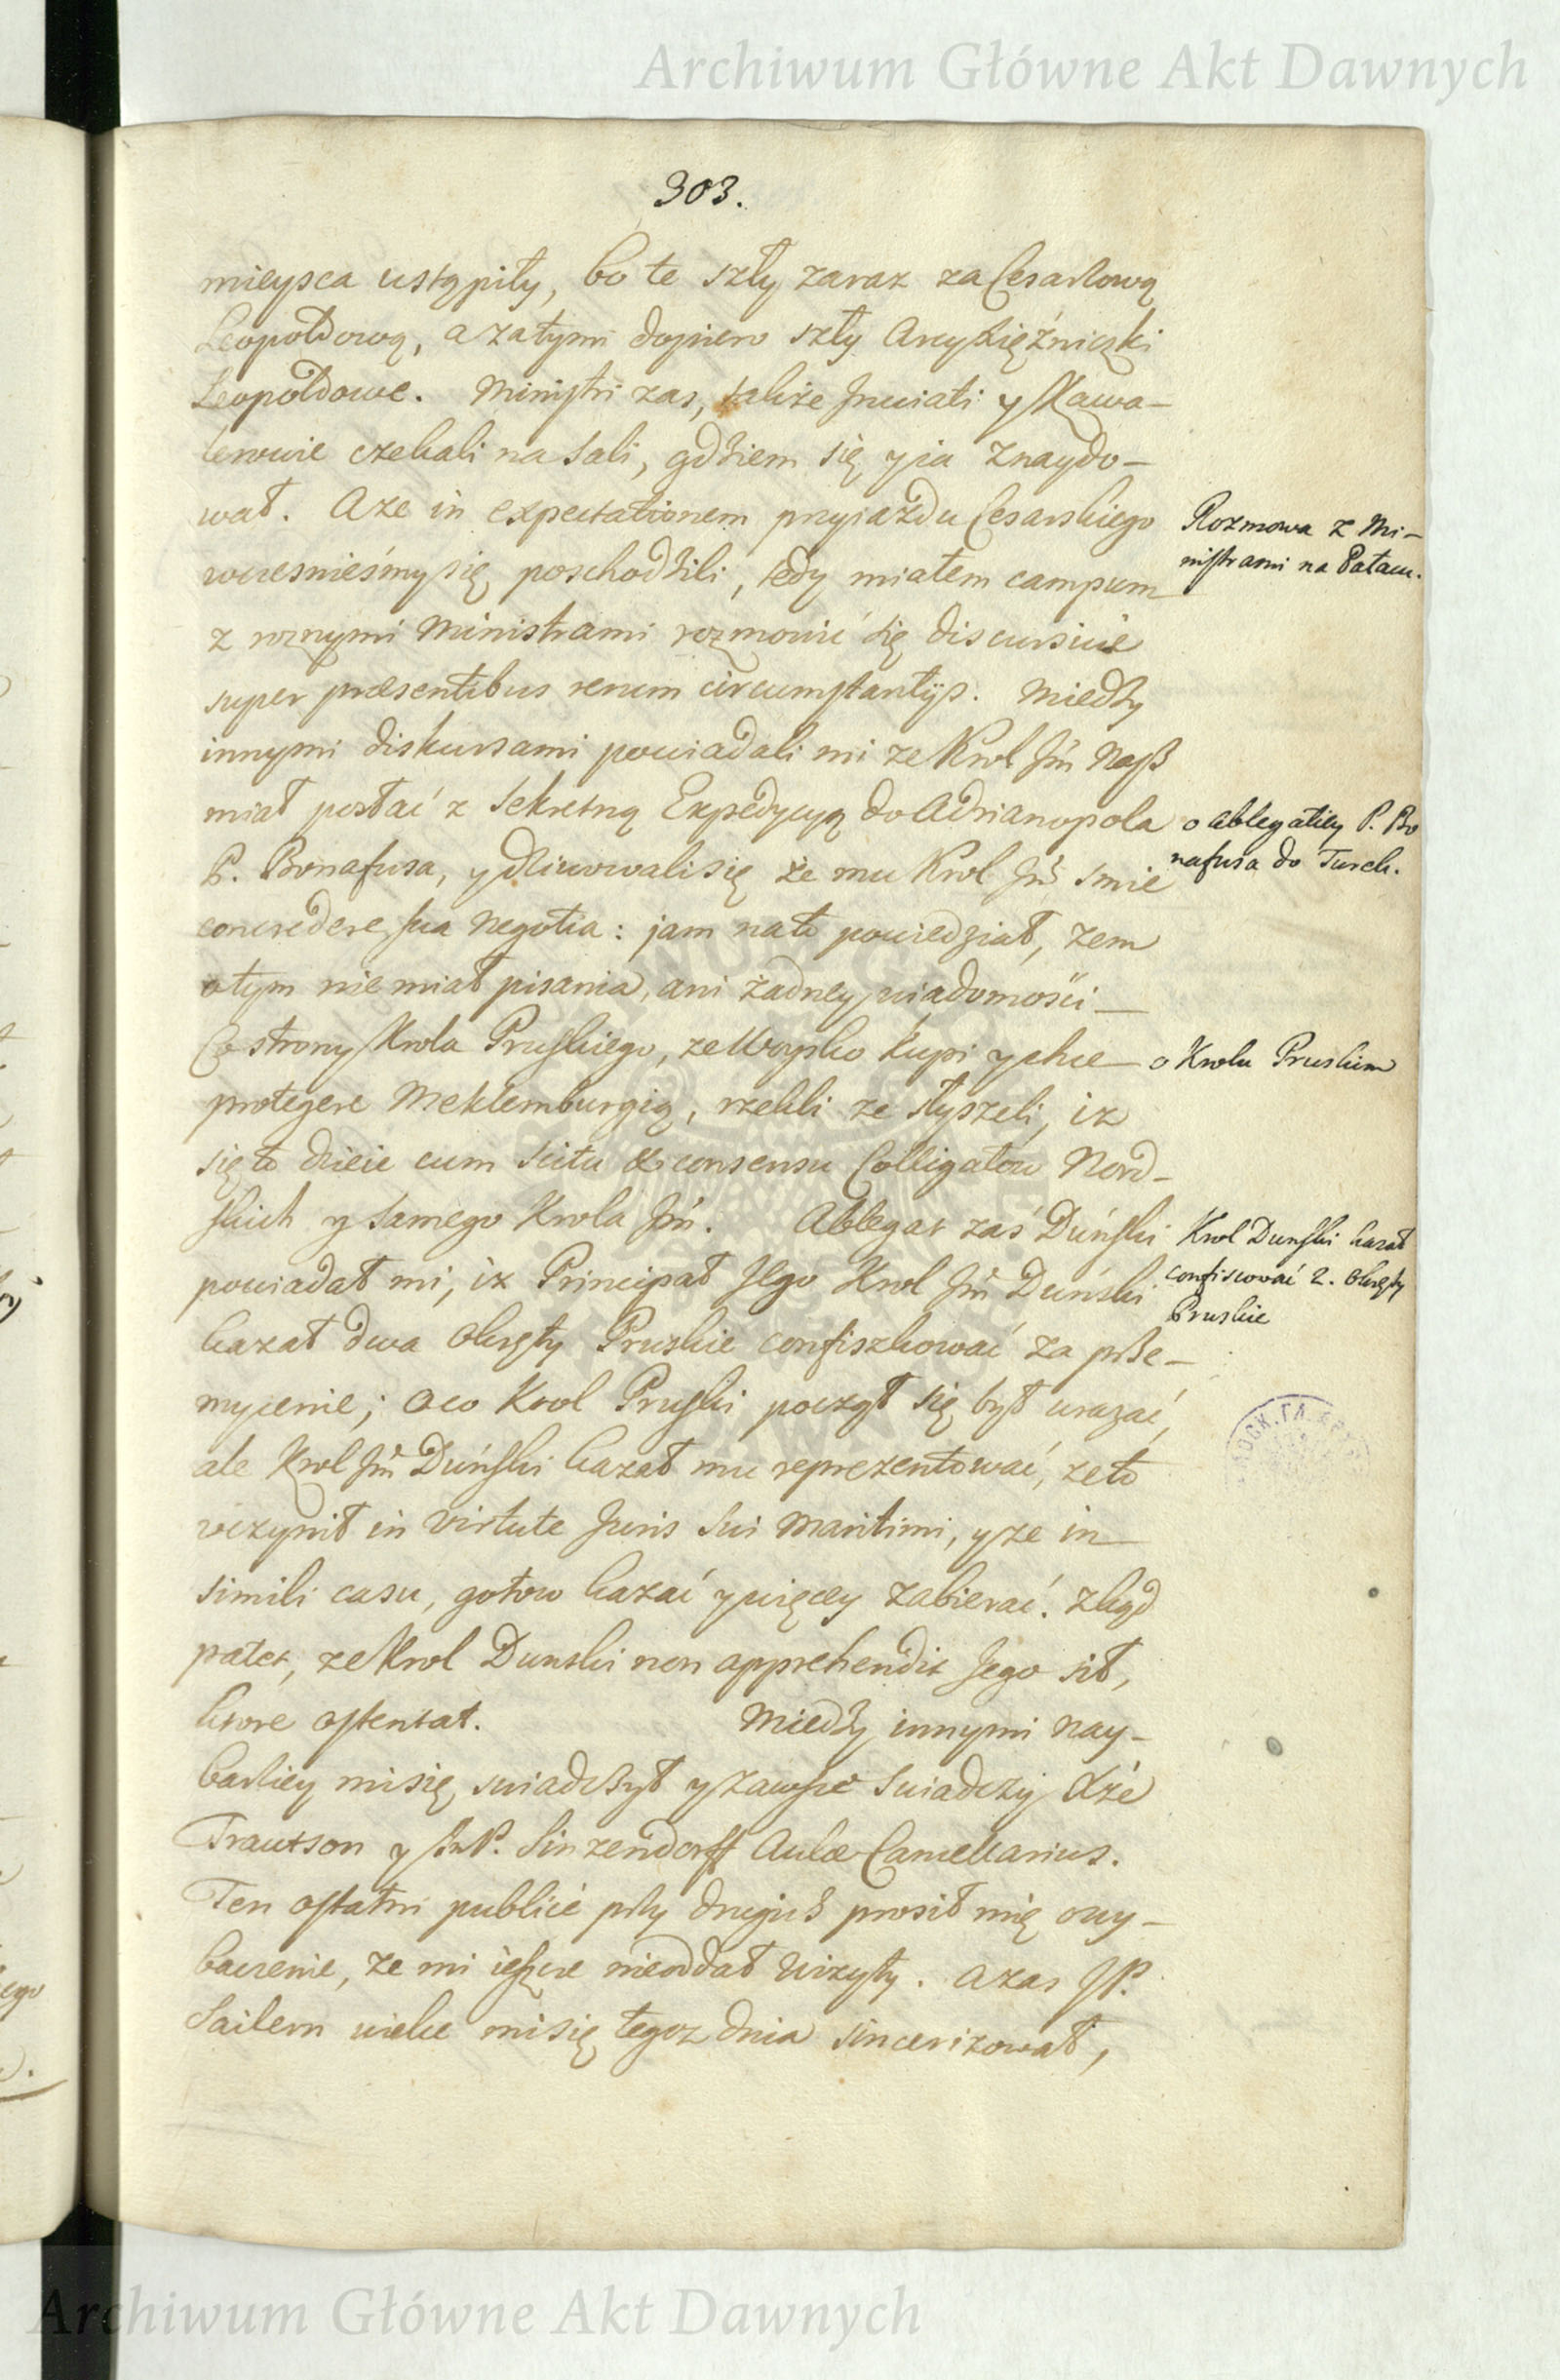 Archiwum Główne Akt Dawnych
303.
mieysca ustąpiły, bo te szły zaraz za Cesarlową
Leopoldową, a zatymi dopiero szły Arcyxiężniczki
Leopoldowe. Ministri zas, także Inwiati y Kawa-
lerowie czekali na Sali, gdziem się y ia znaydo-
wał. A ze in expectationem przyiazdu Cesarskiego
wczesnieśmy się poschodzili, tedy miałem campum
z roznymi Ministrami rozmowić się discursive
super præsentibus rerum circumstantijs. Miedzy
innymi diskursami powiadali mi ze Krol Jm̃ Nasz
miał posłać z sekretną Expedycyą do Adrianopola
P. Bonafusa, y dziwowali się że mu Krol Jm̃ smie
concredere sua negotia: jam nato powiedział, zem
otym nie miał pisania, ani żadney wiadomości
Co strony Krola Pruskiego, ze Woysko kupi y chce
protegere Meklemburgią, rzekli ze słyszeli, iz
się to dzieie cum scitu & consensu Colligatow Nord-
skich y samego Krola Jm̃. Ablegat zaś Duński
powiadał mi, iz Principał Jego Krol Jm̃ Duński
kazał dwa Okręty Pruskie confiszkować za prze-
mycenie; oco Krol Pruski począł się był urazać,
ale Krol Jm̃ Duński kazał mu reprezentować, zeto
uczynił in virtute Juris Sui Maritimi, y ze in
simili casu, gotow kazać y więcey zabierać. Zkąd
patet, ze Krol Dunski non apprehendit Jego sił,
ktore ostentat. Miedzy innymi nay-
barziey mi się swiadczył y zawsze swiadczy Xże
Trautson y Jm̃P. Sinzendorff Aulæ Cancellarius.
Ten ostatni publice przy drugich prosił mię o wy-
baczenie, ze mi ieszcze nieoddał wizyty. A zas JP.
Sailern wielce mi się tegoz dnia sincerizował,
Rozmowa z Mi-
nistrami na Pałacu.
o ablegatiey P. Bo
nafusa do Turek.
o Krolu Pruskim
Krol Dunski kazał
confiscować 2. Okręty
Pruskie
Archiwum Główne Akt Dawnych